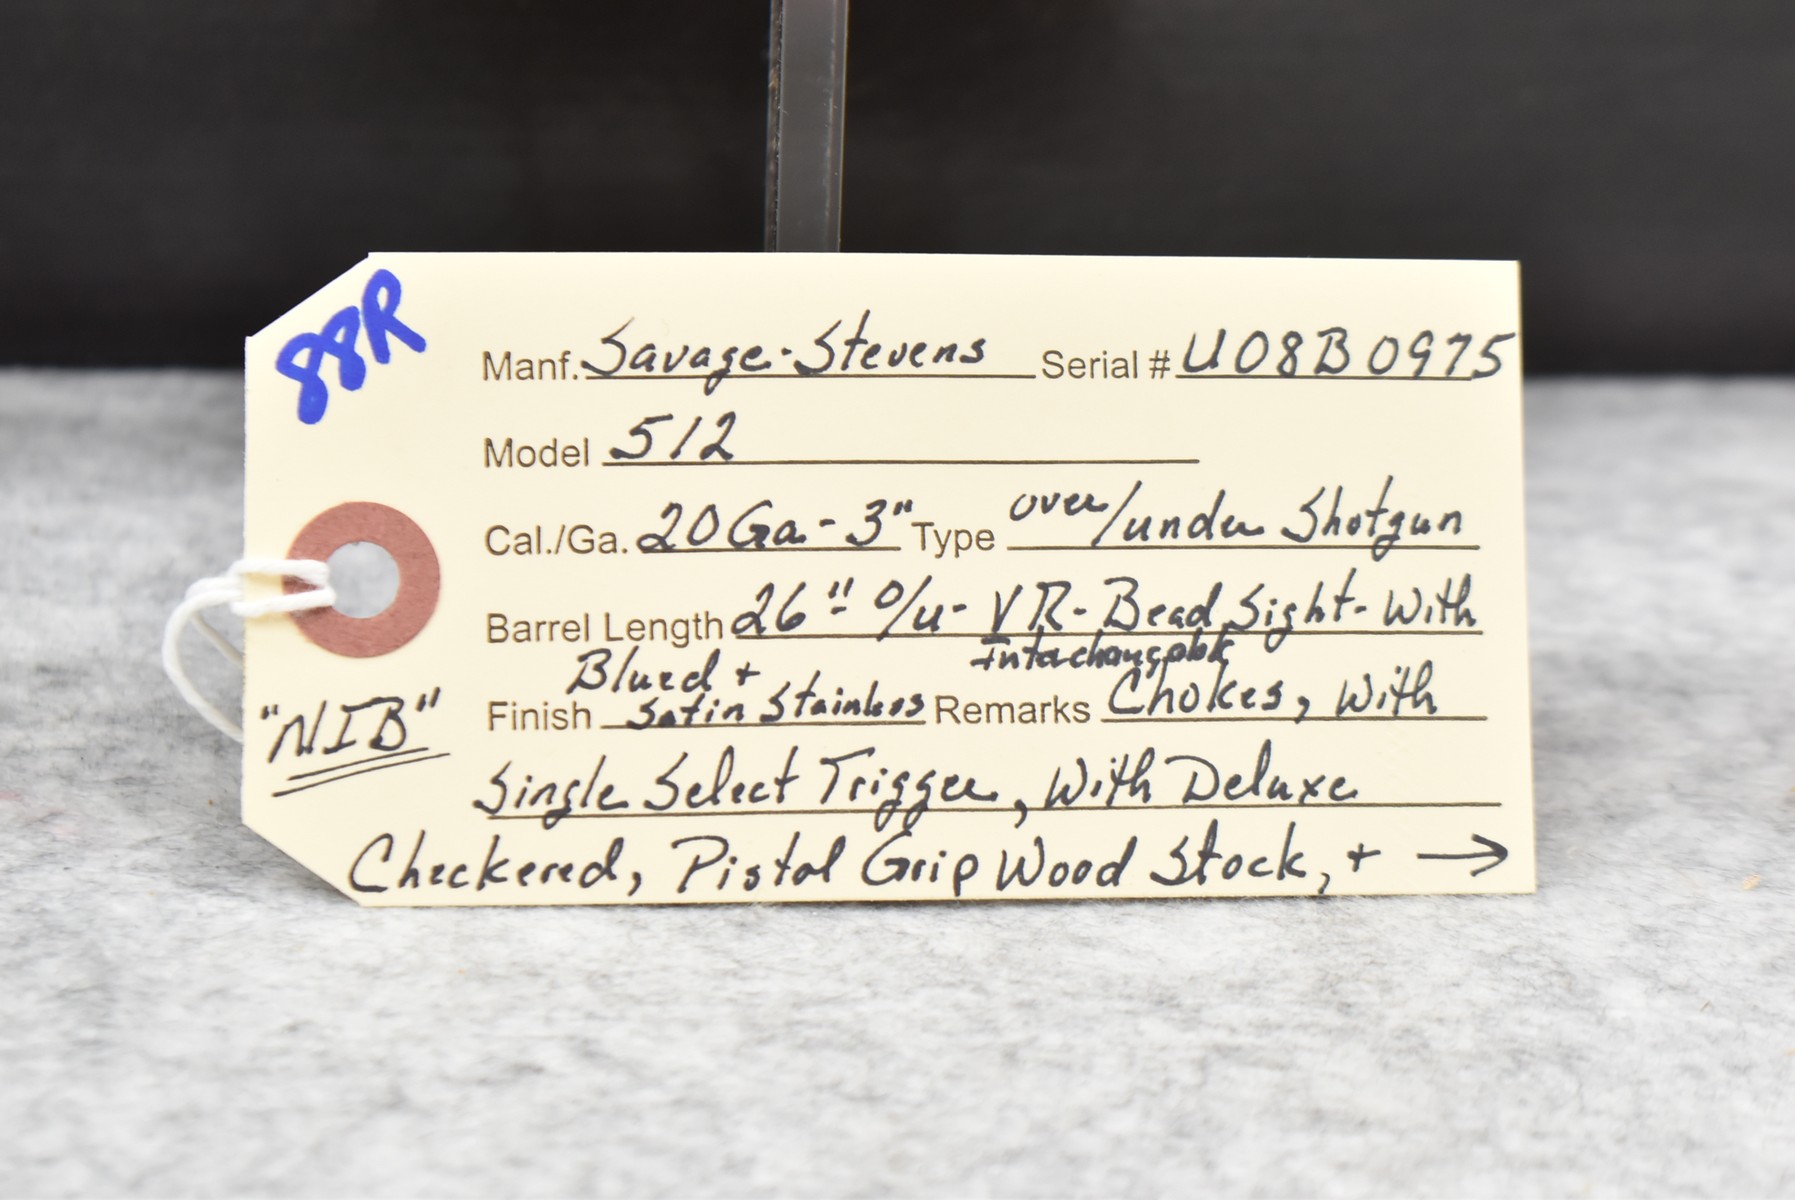 88R
Manf. Savage-Stevens Serial # U08B0975
Model 512
Cal./Ga. 20 Ga-3" Type over/under Shotgun
Barrel Length 26" O/U- VR-Bead Sight-With
Interchangable
Blued +
Finish Satin Stainless Remarks Chokes, With
"NIB"
Single Select Trigger, With Deluxe
Checkered, Pistol Grip Wood Stock, + →